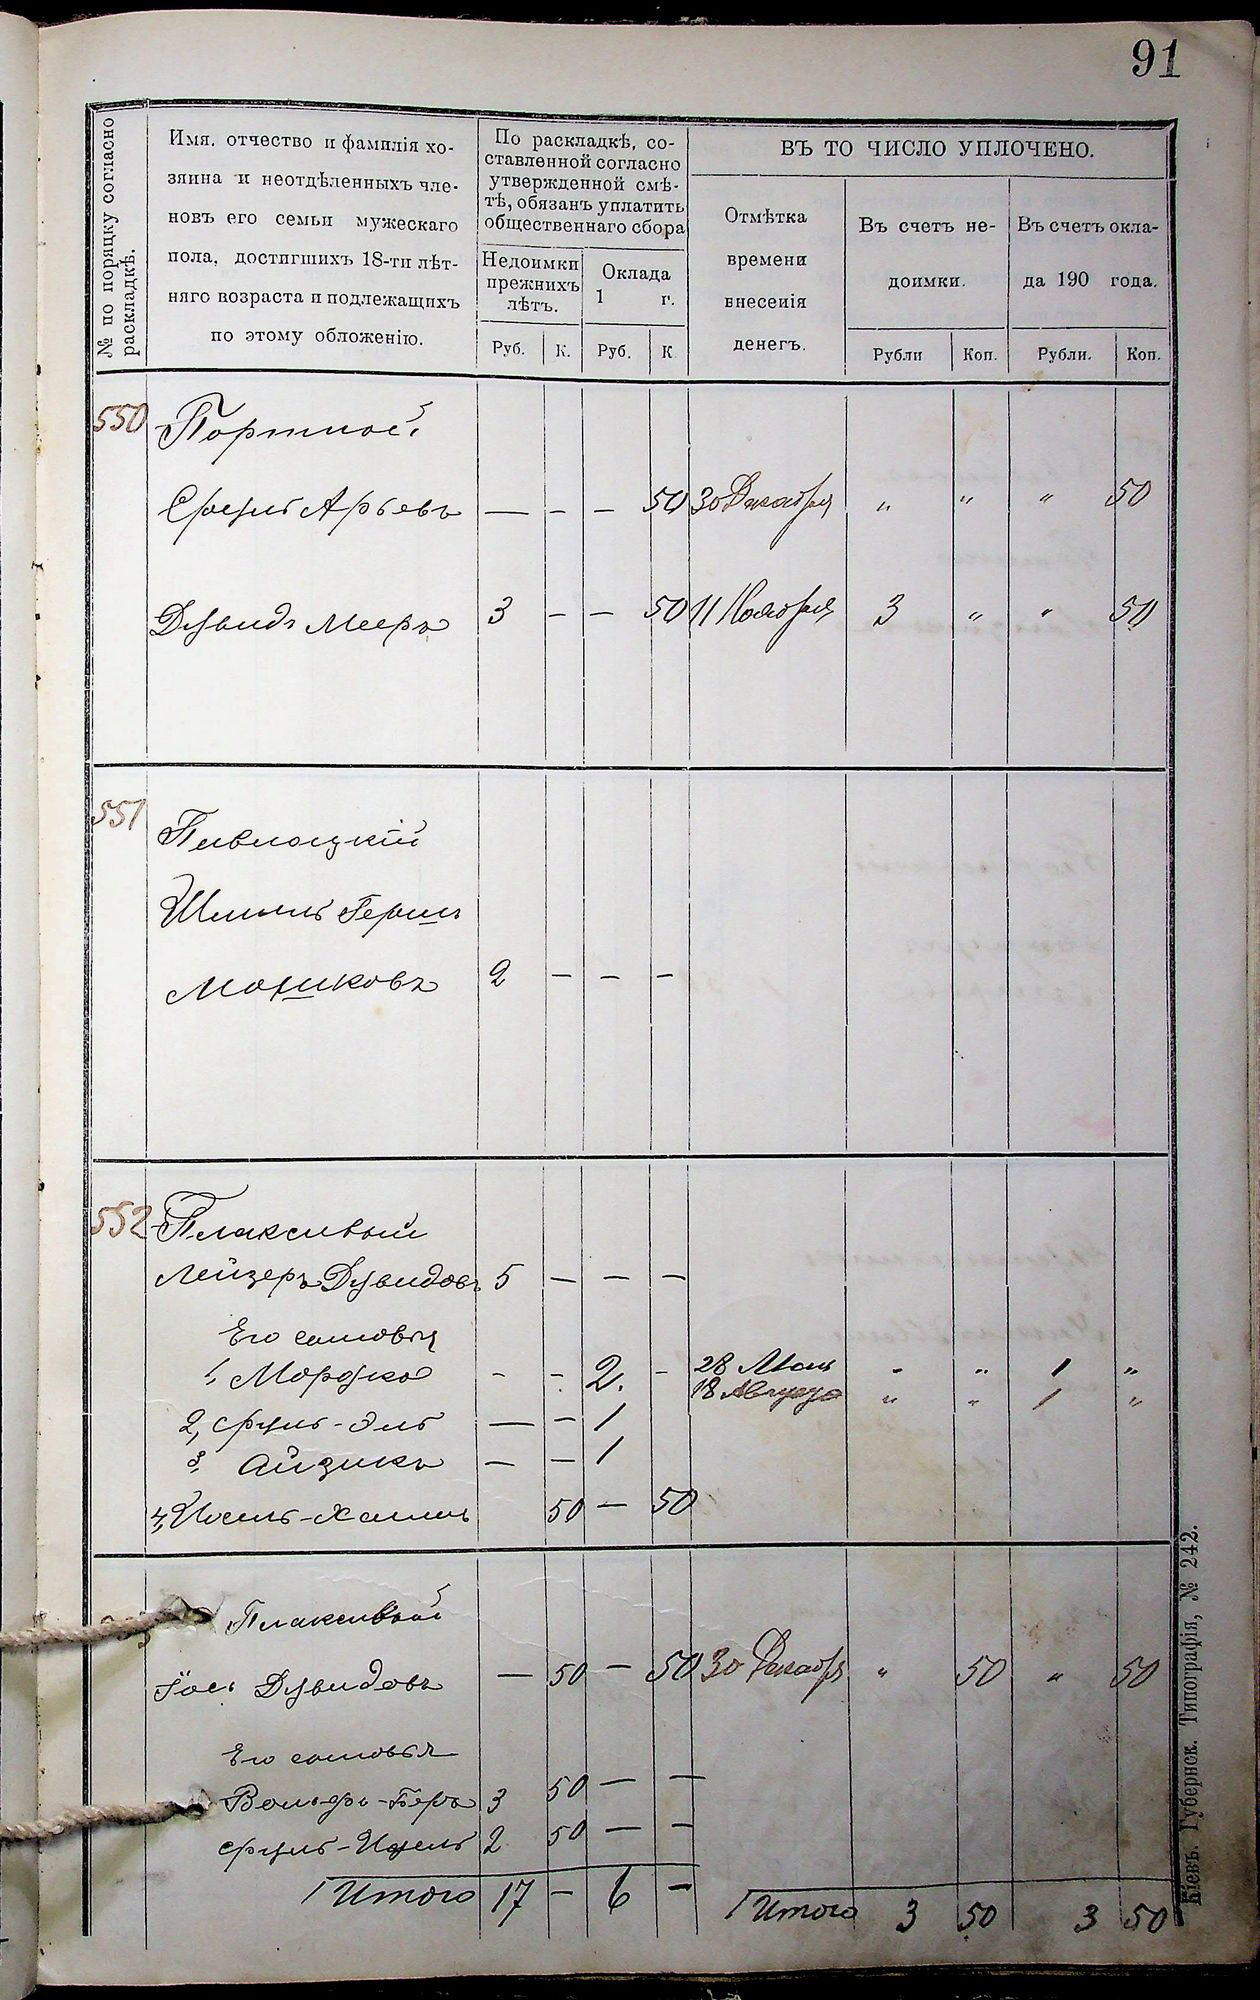 91
№ по порядку согласно
раскладкѣ.
Имя, отчество и фамилія хо-
зяина и неотдѣленныхъ чле-
новъ его семьи мужескаго
пола, достигшихъ 18-ти лѣт-
няго возраста и подлежащихъ
по этому обложенію.
По раскладкѣ, со-
ставленной согласно
утвержденной смѣ-
тѣ, обязанъ уплатить
общественнаго сбора
Недоимки
прежнихъ
лѣтъ.
Оклада
1 г.
Руб. К. Руб. К
ВЪ ТО ЧИСЛО УПЛОЧЕНО.
Отмѣтка
времени
внесенія
денегъ.
Въ счетъ не-
доимки.
Въ счетъ окла-
да 190 года.
Рубли Коп. Рубли. Коп.
550 Портной
Сруль Арьевъ — - — 50 30 Декабря " " " 50
Дувидъ Мееръ 3 - — 50 11 Ноября 3 " " 50
551
Пивлоцкій
Шмуль Герш
Мошковъ 2 — — —
552 Плаксивый
Лейзеръ Дувидовъ 5 — — —
Его сыновья
1, Мордко - - 2. - 28 Мая " " 1 "
18 Августа " " 1 "
2, Сруль-Эль — — 1
3, Айзикъ — — 1
4, Иосель-Хаим 50 — 50
Плаксивый
Іось Дувидовъ — 50 — 50 30 Декабря " 50 " 50
Его сыновья
Вольфъ-Беръ 3 50 — —
Сруль-Ицель 2 50 — —
Итого 17 — 6 —
Итого 3 50 3 50
Кіевъ. Губернск. Типографія, № 242.